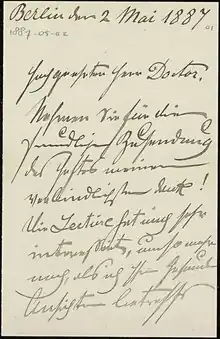 Berlin den 2 Mai 1887
1887-05-02
01
Hochgeehrter Herr Doctor.
Nehmen Sie für die
freundliche Zusendung
des Textes meinen
verbindlichsten Dank!
Die Lecture hat mich sehr
interessirt, umso mehr
noch, als ich Ihre
Ansichten betreffs